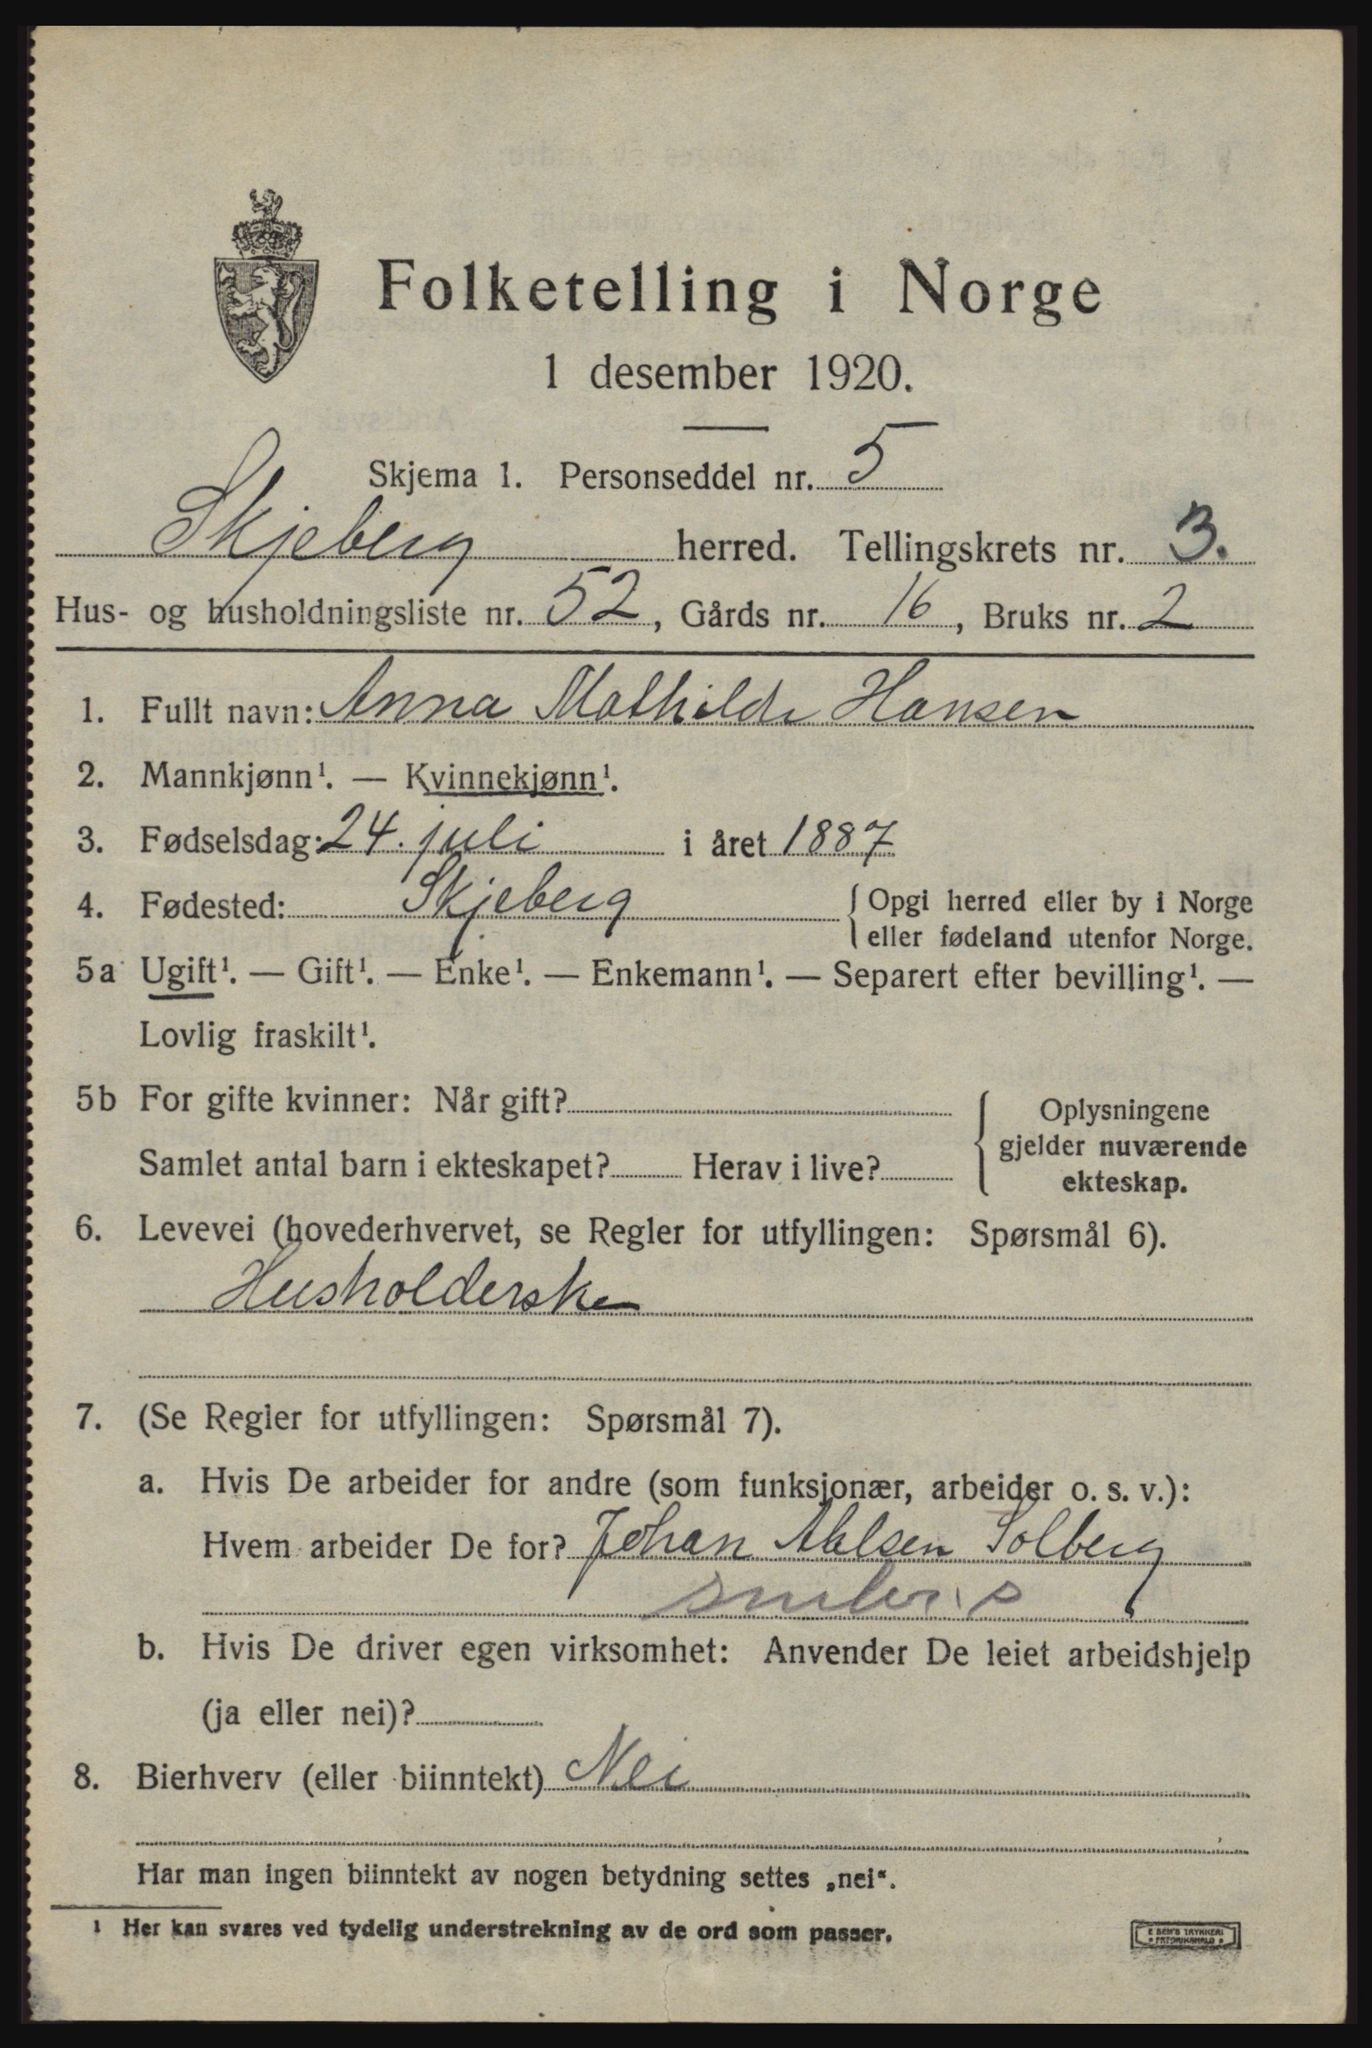 Folketelling i Norge
1 desember 1920.
Skjema 1. Personseddel nr. 5
Skjeberg herred. Tellingskrets nr. 3.
Hus- og husholdningsliste nr. 52, Gårds nr. 16, Bruks nr. 2
1. Fullt navn: Anna Mathilde Hansen
2. Mannkjønn¹. — Kvinnekjønn¹.
3. Fødselsdag: 24. juli i året 1887
4. Fødested: Skjeberg { Opgi herred eller by i Norge
eller fødeland utenfor Norge.
5a Ugift¹. — Gift¹. — Enke¹. — Enkemann¹. — Separert efter bevilling¹. —
Lovlig fraskilt¹.
5b For gifte kvinner: Når gift?
Samlet antal barn i ekteskapet? Herav i live?
Oplysningene
gjelder nuværende
ekteskap.
6. Levevei (hovederhvervet, se Regler for utfyllingen: Spørsmål 6).
Husholderske
7. (Se Regler for utfyllingen: Spørsmål 7).
a. Hvis De arbeider for andre (som funksjonær, arbeider o. s. v.):
Hvem arbeider De for? Johan Solberg
b. Hvis De driver egen virksomhet: Anvender De leiet arbeidshjelp
(ja eller nei)?
8. Bierhverv (eller biinntekt) Nei
Har man ingen biinntekt av nogen betydning settes „nei“.
¹ Her kan svares ved tydelig understrekning av de ord som passer.